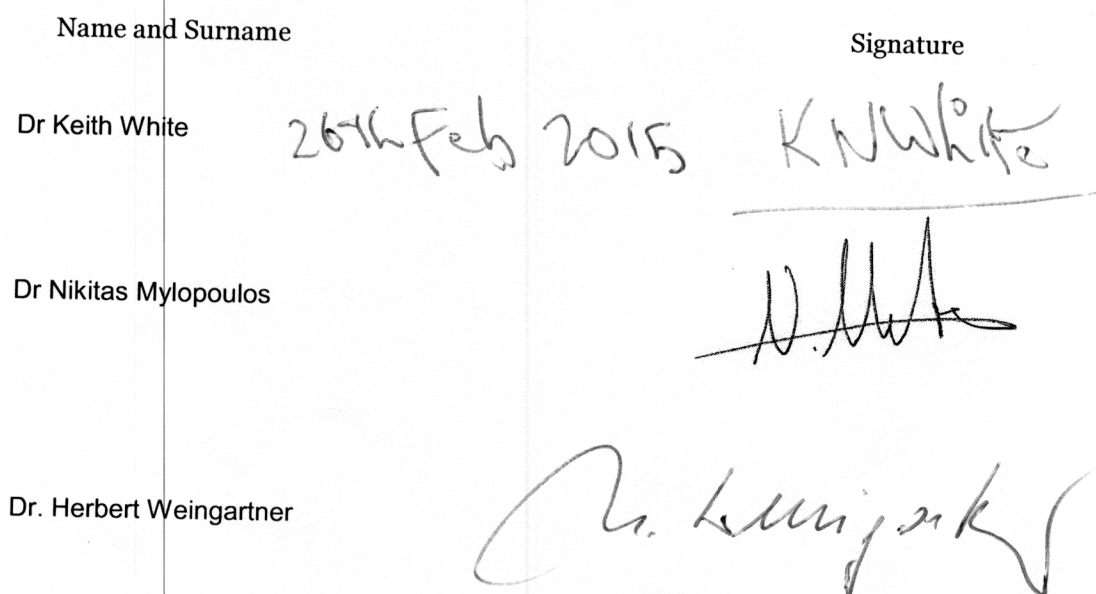 Name and Surname
Signature
Dr Keith White 26th Feb 2015 KNWhite
Dr Nikitas Mylopoulos
Dr. Herbert Weingartner